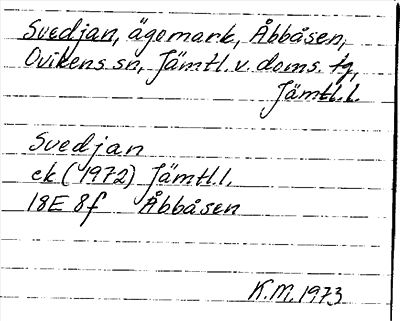 Svedjan, ägomark, Åbbåsen,
Ovikens sn, Jämtl. v. doms. tg,
Jämtl. l.
Svedjan
ek (1972) Jämtl. l.
18E 8f Åbbåsen
K.M. 1973